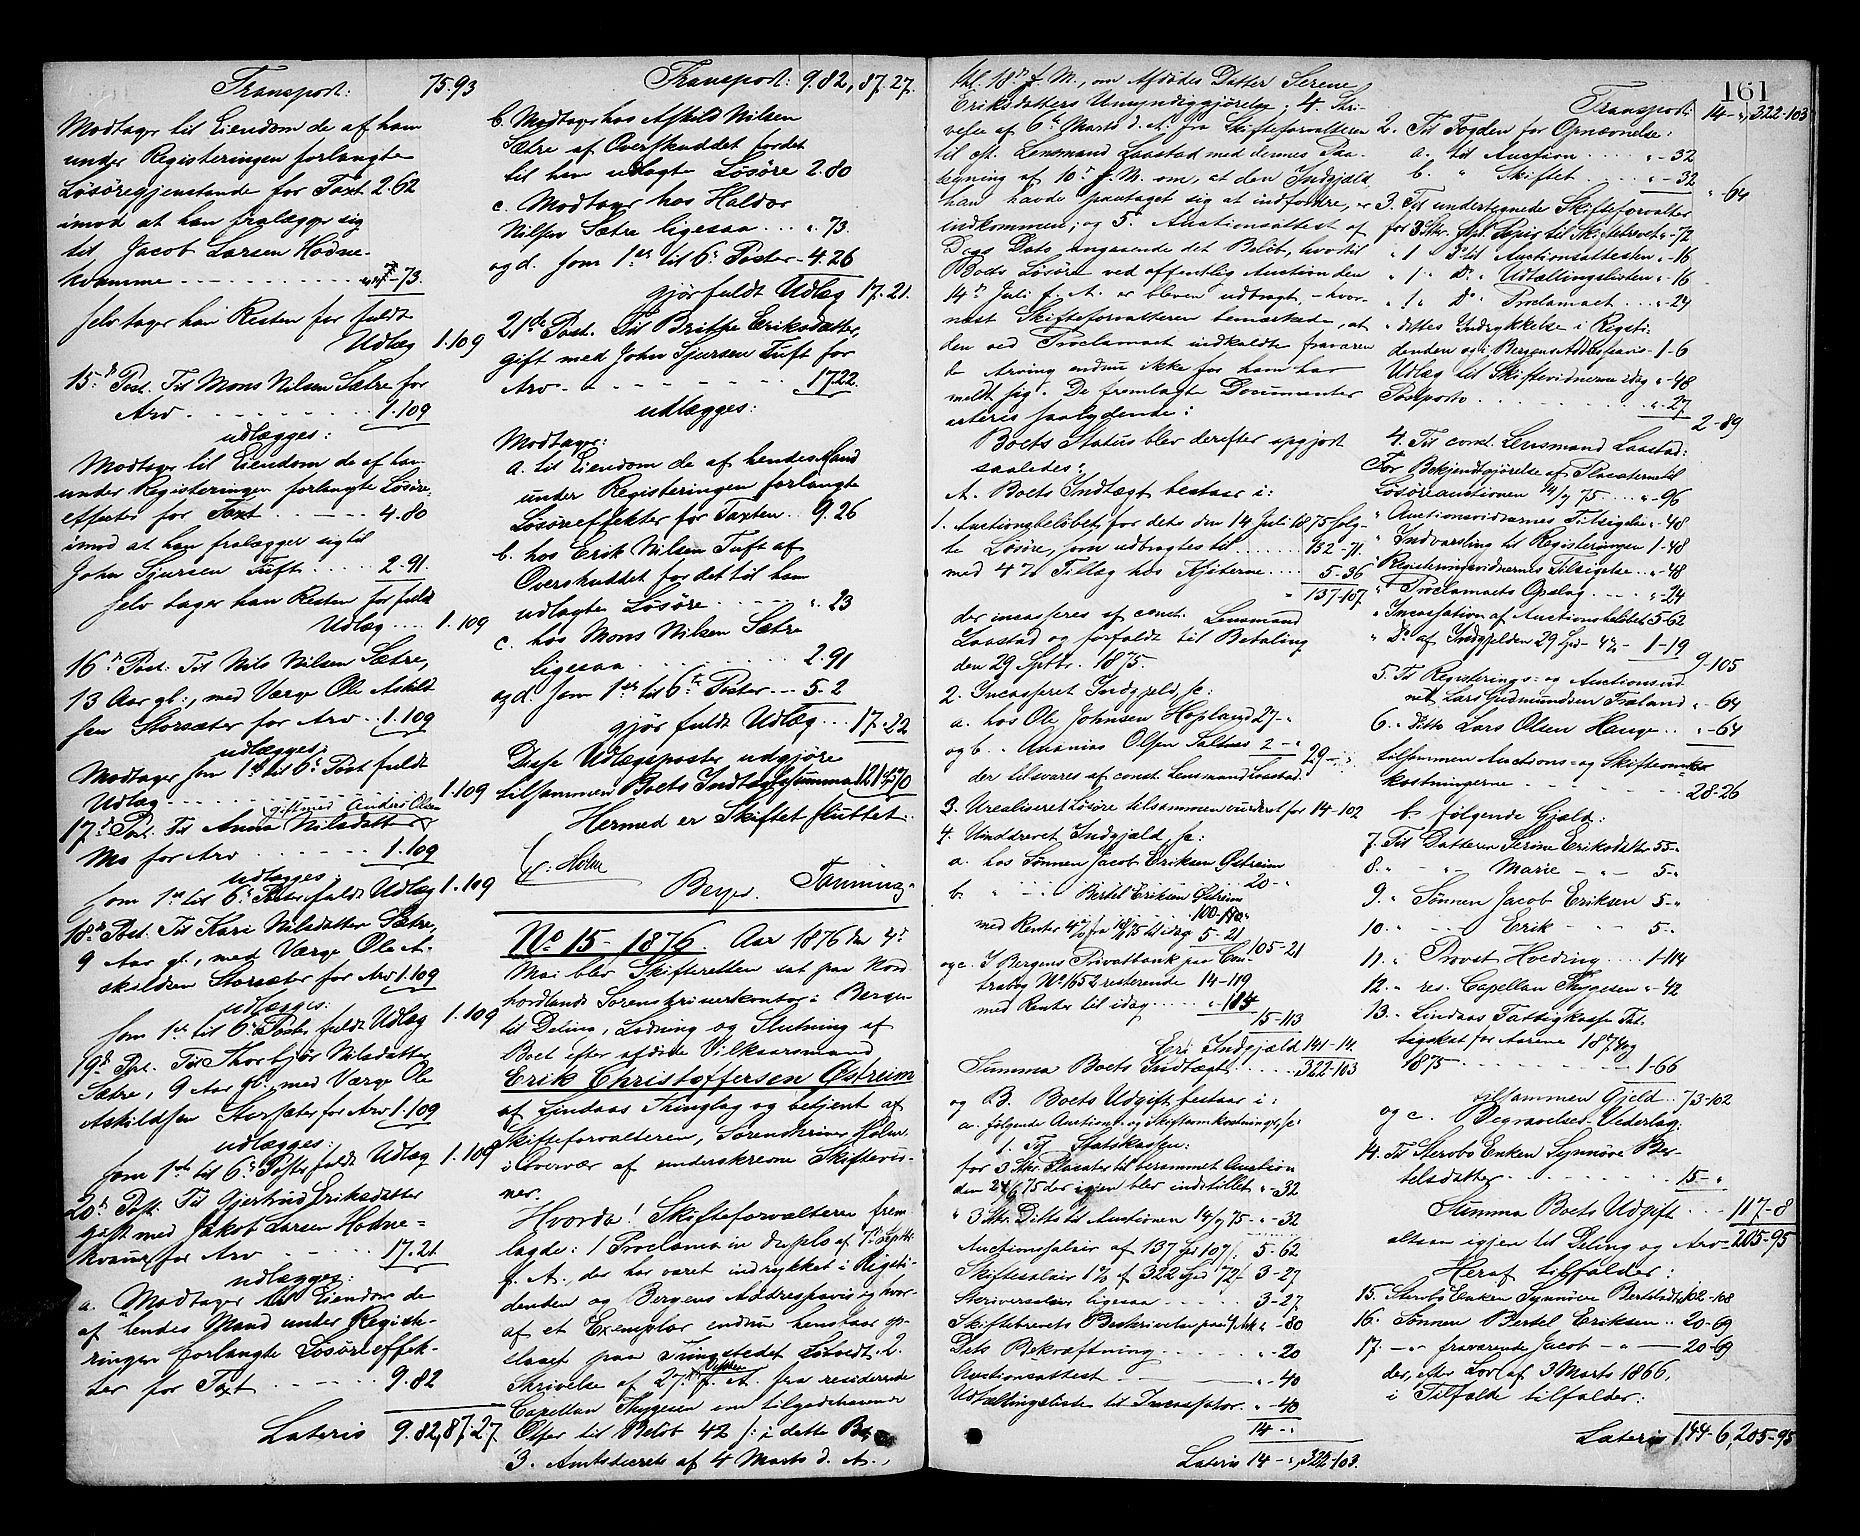 Transport: 75.93
Modtager til Eiendom de af ham
under Registeringen forlangte
Løsøregjenstande for Taxt 2.62
imod at han fralægger sig
til Jacob Larsen Hodne-
kvamme - - - - 73.
selv tager han Resten for fuldt
Udlæg 1.109
15de Post. Til Mons Nilsen Sætre for
Arv - - - - 1.109
udlægges:
Modtager til Eiendom de af ham
under Registeringen forlangte Løsøre-
effecter for Taxt - - - 4.80
imod at han fralægger sig til
John Sjursen Tuft - - - 2.91.
selv tager han Resten for fuldt
Udlæg .... 1.109
16de Post. Til Nils Nilsen Sætre,
13 Aar gl:, med Værge Ole Askild-
sen Storsæter for Arv .. 1.109
udlægges:
Modtager som 1ste til 6te Post fuldt
Udlæg - - - - 1.109
17de Post. Til Anna Nilsdatter gift med Anders Olsen
Mo for Arv - - - 1.109
udlægges:
som 1ste til 6te Poster fuldt Udlæg 1.109
18de Post. Til Kari Nilsdatter Sætre,
9 Aar gl., med Værge Ole A-
skildsen Storsæter for Arv 1.109
udlægges:
som 1ste til 6te Poster fuldt Udlæg 1.109
19de Post. Til Thorbjør Nilsdatter
Sætre, 9 Aar gl., med Værge Ole
Askildsen Storsæter for Arv 1.109
udlægges:
som 1ste til 6te Poster fuldt Udlæg 1.109
20de Post. Til Gjertrud Eriksdatter
gift med Jakob Larsen Hodne=
kvam for Arv - - - 17.21
udlægges:
a. Modtager til Eiendom de
af hendes Mand under Registe-
ringen forlangte Løsøreeffek-
ter for Taxt - - - 9.82
Lateris 9.82, 87.27.
Transport: 9.82, 87.27.
b. Modtager hos Askild Nilsen
Sætre af Overskuddet for det
til ham udlagte Løsøre 2.80
c. Modtager hos Haldor
Nilsen Sætre ligesaa ... ". 73.
og d. som 1ste til 6te Poster - 4.26
gjør fuldt Udlæg 17.21.
21de Post. Til Brithe Eriksdatter,
gift med John Sjursen Tuft for
Arv - - - - 17.22.
udlægges:
Modtager:
a. til Eiendom de af hendes Mand
under Registeringen forlangte
Løsøreeffekter for Taxten .. 9.26
b. hos Erik Nilsen Tuft af
Overskuddet for det til ham
udlagte Løsøre - - - ". 23
c. hos Mons Nilsen Sætre
ligesaa - - - - 2.91
og d. som 1ste til 6te Poster - - 5.2
gjør fuldt Udlæg ... 17.22
Disse Udlægsposter udgjøre
tilsammen Boets Indtægtssumma
Hermed er Skiftet sluttet.
Berger. Tonning.
No 15 - 1876. Aar 1876 den 4de
Mai blev Skifteretten sat paa Nord-
hordlands Sorenskriverkontor i Bergen
til Deling, Lodning og Slutning af
Boet efter afdøde Vilkaarsmand
Erik Christoffersen Østreim
af Lindaas Thinglag og betjent af
Skifteforvalteren, Sorenskriver
i Overvær af underskrevne Skiftevid-
ner.
Hvorda! Skifteforvalteren frem-
lagde: 1 Proclama in duplo af 7de Septbr
f. A., der har været indrykket i Rigsti-
denden og Bergens Addresseavis og hvor-
af et Exemplar endnu henstaar op-
slaaet paa Tingstedet 2.
Skrivelse af 27de f. A. fra residerende
Capellan Thygesen om tilgodehavende
Offer til Beløb 42 /: i dette Bo
3. Amtsdecrets af 4 Marts d. A.,
161
Skl. 18de f. M., om Afdødes Datter Serene
Eriksdatters Umyndiggjørelse; 4. Skri-
velse af 6te Marts d. A. fra Skifteforvalteren
til cst. Lensmand Laastad med dennes Paa-
tegning af 10de f. M. om, at den Indgjæld,
han havde paataget sig at indfordre, er
indkommen; og 5. Auctionsattest af
Dags Dato angaaende det Beløb, hvortil
Boets Løsøre ved offentlig Auction den
14de Juli f. A. er bleven udbragt, - hvor-
næst Skifteforvalteren bemærkede, at
den ved Proclamaet indkaldte fraværen-
de Arving endnu ikke for ham har
meldt sig. De fremlagte Documenter
acteres saalydende:
Boets Status blev derefter opgjort
saaledes:
A. Boets Indtægt bestaar i:
1. Auctionsbeløbet, for dets den 14 Juli 1875 solg-
te Løsøre, som udbragtes til ...... 132-71.
med 4% Tillæg hos Kjøberne ... 5-36
137-107.
der incasseres af const. Lensmand
Laastad og forfaldt til Betaling
den 29 Septbr. 1875.
2. Incasseret Indgjeld, sc:
a. hos Ole Johnsen Hopland 27-"
og b. " Ananias Olsen Saltnes 2-" 29-"
der tilsvares af const. Lensmand Laastad.
3. Urealiseret Løsøre tilsammen vurderet for 14-102
4. Uinddrevet Indgjæld, sc:
a. hos Sønnen Jacob Eriksen Østreim
20-"
b. " " Bertel Eriksen Østreim
100-"
med Renter 4% fra til idag 5-21 105-21
og c. I Bergens Privatbank paa Con-
trabog No 1652 resterende 14-119
med Renter til idag ...
15-113
Eri Indgjæld 141-14.
Summa Boets Indtægt ..... 322-103
og B. Boets Udgift bestaar i:
a. følgende Auctions- og Skifteomkostninger, sc:
1. Til Statskassen:
for 3 Skr. Placater til berammet Auction
den 24/6 75 der igjen blev indstillet "-32
" 3 Skr. Ditto til Auctionen 14/7 75 - "-32
Auctionssalair af 137 Spd 107/: 5-62
Skiftesalair 1% af 322 Spd 72/: 3-27
Skriversalair ligesaa - - - 3-27
Skiftebrevets Beskrivelse paa "-80
Dets Bekræftning - - - "-20
Auctionsattest - - - "-40
Udtællingsliste til Incassator. "-40
14-"
Lateris 14-", 322-103.
Transport: 14-", 322-103
2. Til Fogden for Opnævnelse:
a. til Auction ..... "-32
b. " Skiftet ..... "-32 "-64
3. Til undertegnede Skifteforvalter
for 3 Skr. Spl. Papir til Skiftebrevet "-72
" 1 D: til Auctionsattesten "-16
" 1 " D: " Udtællingslisten "-16
" 1 " Do. " Proclamaet ... "-24
" dettes Indrykkelse i Rigsti-
denden og i Bergens Addresseavis - 1-6
Udlæg til Skiftevidnerne idag "-48
Postporto - - - - "-27 2-89
4. Til const. Lensmand Laastad:
For Bekjendtgjørelse af Placaterne til
Løsøreauctionen 14/7 75 ... "-96
" Auctionsvidnernes Tilsigelse "-48
" Indvarsling til Registeringen 1-48
Registeringsvidnernes Tilsigelse .. "-48
" Proclamaets Opslag .... "-24
" Incassation af Auctionsbeløbet 5-62
" Do. af Indgjelden 29 Spd 4% - 1-19 9-105
5. Til Registerings- og Auctionsvid-
net Lars Gudmundsen Fæland "-64
6. " Ditto Lars Olsen Hauge .. "-64
tilsammen Auctions- og Skifteom-
kostningerne - - - - 28-26
b. følgende Gjæld:
7. Til Datteren Serene Eriksdatter 55-"
8. " - " - Marie - " - 5-"
9. " Sønnen Jacob Eriksen 5-"
10. " - " - Erik - " - 5-"
11. " Provst Hvoding .... 1-114
12. " res. Capellan Thygesen "-42
13. " Lindaas Fattigkasse Fat-
tigskat for Aarene 1874 og
1875 - - - - 1-66
tilsammen Gjeld .. 73-102
og c. Begravelses-Vederlag:
14. Til Stervbo Enken Synnøve Ber-
telsdatter - - - - 15-"
Summa Boets Udgift ... 117-8
altsaa igjen til Deling og Arv - 205-95
Heraf tilfalder:
15. Stervbo Enken Synnøve Bertelsdtr. 102-108
16. Sønnen Bertel Eriksen .. 20-69
17. - " fraværende Jacob - " - 20-69
der, efter Lov af 3 Marts 1866,
i Tilfælde tilfalder:
Lateris 144-6, 205-95